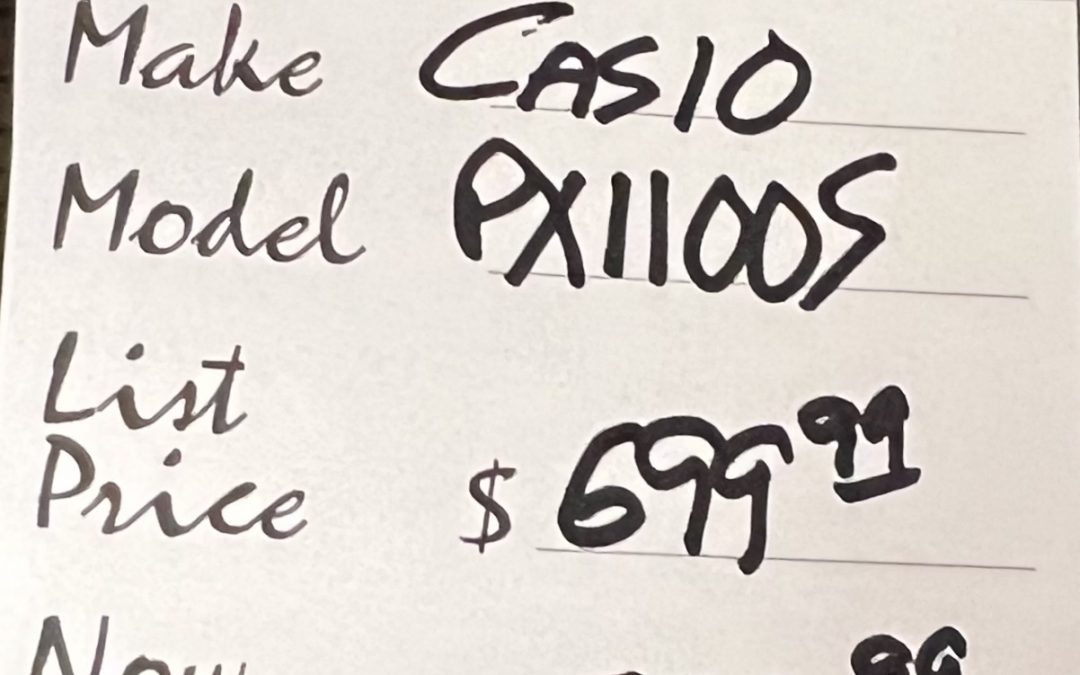 Make CASIO
Model PX1100S
List
Price $ 699 99
Now 99